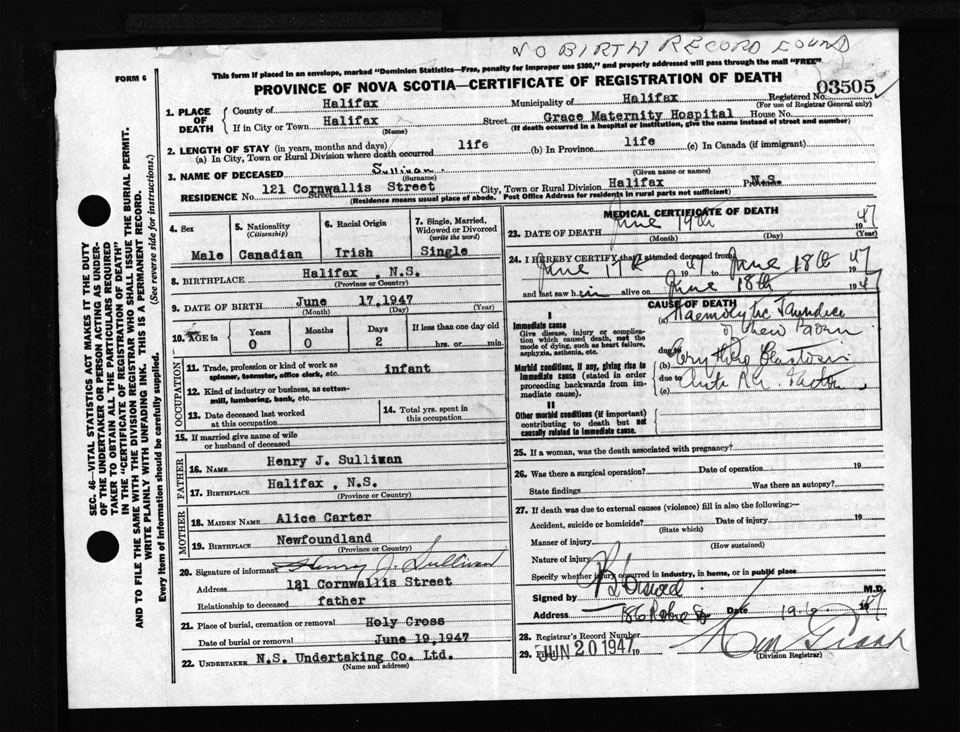 NO BIRTH RECORD FOUND
FORM 6
This form if placed in an envelope, marked "Dominion Statistics—Free, penalty for improper use $300," and properly addressed will pass through the mail "FREE"
PROVINCE OF NOVA SCOTIA—CERTIFICATE OF REGISTRATION OF DEATH
03505
Registered No.
(For use of Registrar General only)
1. PLACE OF DEATH
County of Halifax Municipality of Halifax
If in City or Town Halifax Street Grace Maternity Hospital House No.
(Name) (If death occurred in a hospital or institution, give the name instead of street and number)
2. LENGTH OF STAY (in years, months and days)
(a) In City, Town or Rural Division where death occurred life (b) In Province life (c) In Canada (if immigrant)
3. NAME OF DECEASED Sullivan.
(Surname) (Given name or names)
RESIDENCE No. 121 Cornwallis Street Street City, Town or Rural Division Halifax Province N.S.
(Residence means usual place of abode. Post Office Address for residents in rural parts not sufficient)
4. Sex
Male
5. Nationality
(Citizenship)
Canadian
6. Racial Origin
Irish
7. Single, Married, Widowed or Divorced
(write the word)
Single
8. BIRTHPLACE Halifax, N.S.
(Province or Country)
9. DATE OF BIRTH June 17, 1947
(Month) (Day) (Year)
10. AGE in
Years Months Days If less than one day old
0 0 2 hrs. or min.
OCCUPATION
11. Trade, profession or kind of work as spinner, teamster, office clerk, etc. infant
12. Kind of industry or business, as cotton-mill, lumbering, bank, etc.
13. Date deceased last worked at this occupation
14. Total yrs. spent in this occupation
15. If married give name of wife or husband of deceased
FATHER
16. NAME Henry J. Sullivan
17. BIRTHPLACE Halifax, N.S.
(Province or Country)
MOTHER
18. MAIDEN NAME Alice Carter
19. BIRTHPLACE Newfoundland
(Province or Country)
20. Signature of informant Henry J. Sullivan
Address 121 Cornwallis Street
Relationship to deceased father
21. Place of burial, cremation or removal Holy Cross
Date of burial or removal June 19, 1947
22. UNDERTAKER N.S. Undertaking Co. Ltd.
(Name and address)
MEDICAL CERTIFICATE OF DEATH
23. DATE OF DEATH June 19th 1947
(Month) (Day) (Year)
24. I HEREBY CERTIFY that I attended deceased from
June 17th 1947 to June 18th 1947
and last saw him alive on June 18th 1947
CAUSE OF DEATH
I
Immediate cause
Give disease, injury or complication which caused death, not the mode of dying, such as heart failure, asphyxia, asthenia, etc.
(a) Haemolytic Jaundice
of New born
Morbid conditions, if any, giving rise to immediate cause (stated in order proceeding backwards from immediate cause).
due to
(b) Erythroblastosis
due to
(c) Anti Rh. Factor
II
Other morbid conditions (if important) contributing to death but not causally related to immediate cause.
25. If a woman, was the death associated with pregnancy?
26. Was there a surgical operation? Date of operation 19
State findings Was there an autopsy?
27. If death was due to external causes (violence) fill in also the following:—
Accident, suicide or homicide? Date of injury 19
(State which)
Manner of injury
(How sustained)
Nature of injury
Specify whether injury occurred in industry, in home, or in public place
Signed by M.D.
Address 186 Robie St Date 19.6. 1947
28. Registrar's Record Number
29. Filed JUN 20 1947 19
(Division Registrar)
SEC. 46—VITAL STATISTICS ACT MAKES IT THE DUTY
OF THE UNDERTAKER OR PERSON ACTING AS UNDER-
TAKER TO OBTAIN ALL THE PARTICULARS REQUIRED
IN THE "CERTIFICATE OF REGISTRATION OF DEATH"
AND TO FILE THE SAME WITH THE DIVISION REGISTRAR WHO SHALL ISSUE THE BURIAL PERMIT.
WRITE PLAINLY WITH UNFADING INK. THIS IS A PERMANENT RECORD.
Every item of information should be carefully supplied. (See reverse side for instructions.)